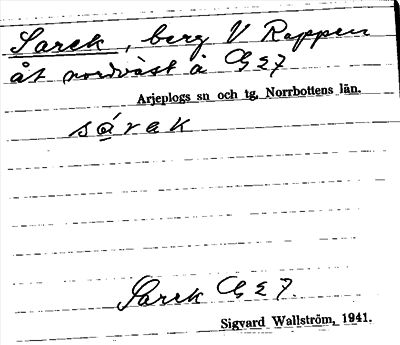 Sarek, berg V Rappen
åt nordväst å G E 7
Arjeplogs sn och tg, Norrbottens län.
sárak
Sarek G E 7
Sigvard Wallström, 1941.